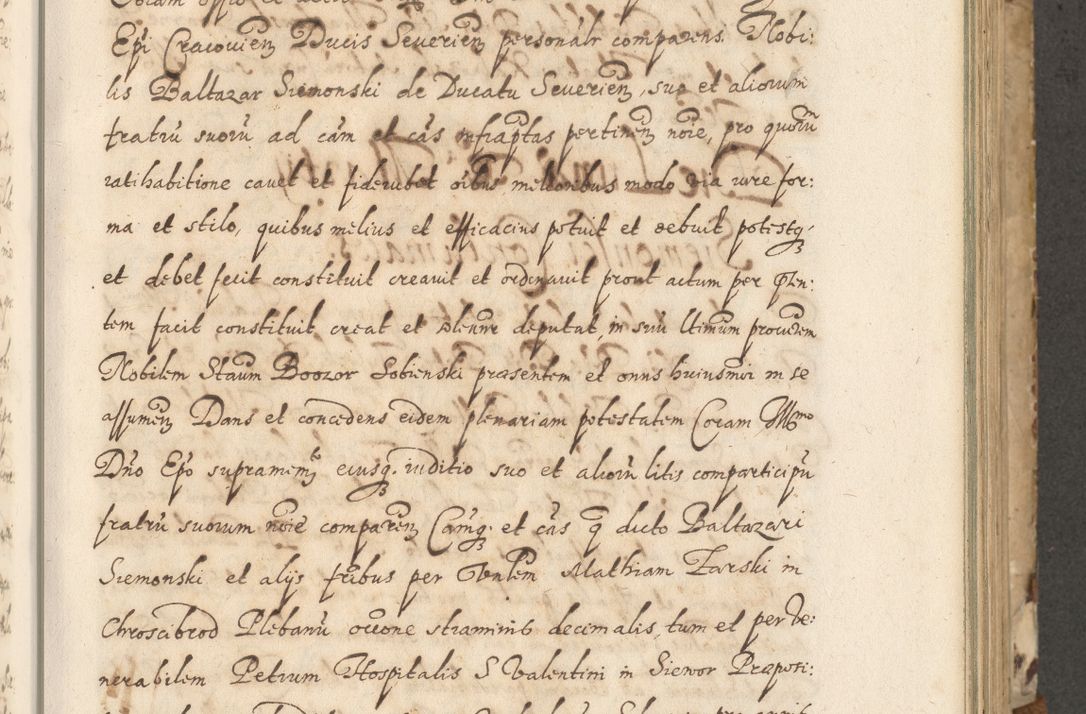 Epi Cracovień Ducis Severień personalr comparens. Nobi:
lis Baltazar Siemonski de Ducatu Severień, suo et aliorum
fratrū suorū ad cām et cās infrascptas pertineń noīe, pro quorū
ratihabitione cavet et fideiubet oibus melioribus modo via iure for:
ma et stilo, quibus melius et efficacius potuit et debuit potestq̢
et debet fecit constituit creavit et ordinavit prout actum per Pn̄:
tem facit constituit creat et solennr deputat, in suū ltimum procurem
Nobilem Staūm Boozor Sobienski praesentem et onus huiusmoī in se
assumeń Dans et concedens eidem plenariam potestatem Coram Illmo
Dn̄o Epo supramemto eiusq̢ iuditio suo et aliorū litis comparticipū
fratrū suorum noīe compareń Camq̢ et cās q̄ dicto Baltazari
Siemonski et alijs frībus per Venlem Mathiam Zarski in
Chroscibrod Plebanū occone straminis decimalis, tum et per Ve:
nerabilem Petrum Hospitalis S Valentini in Siewor Praeposi: